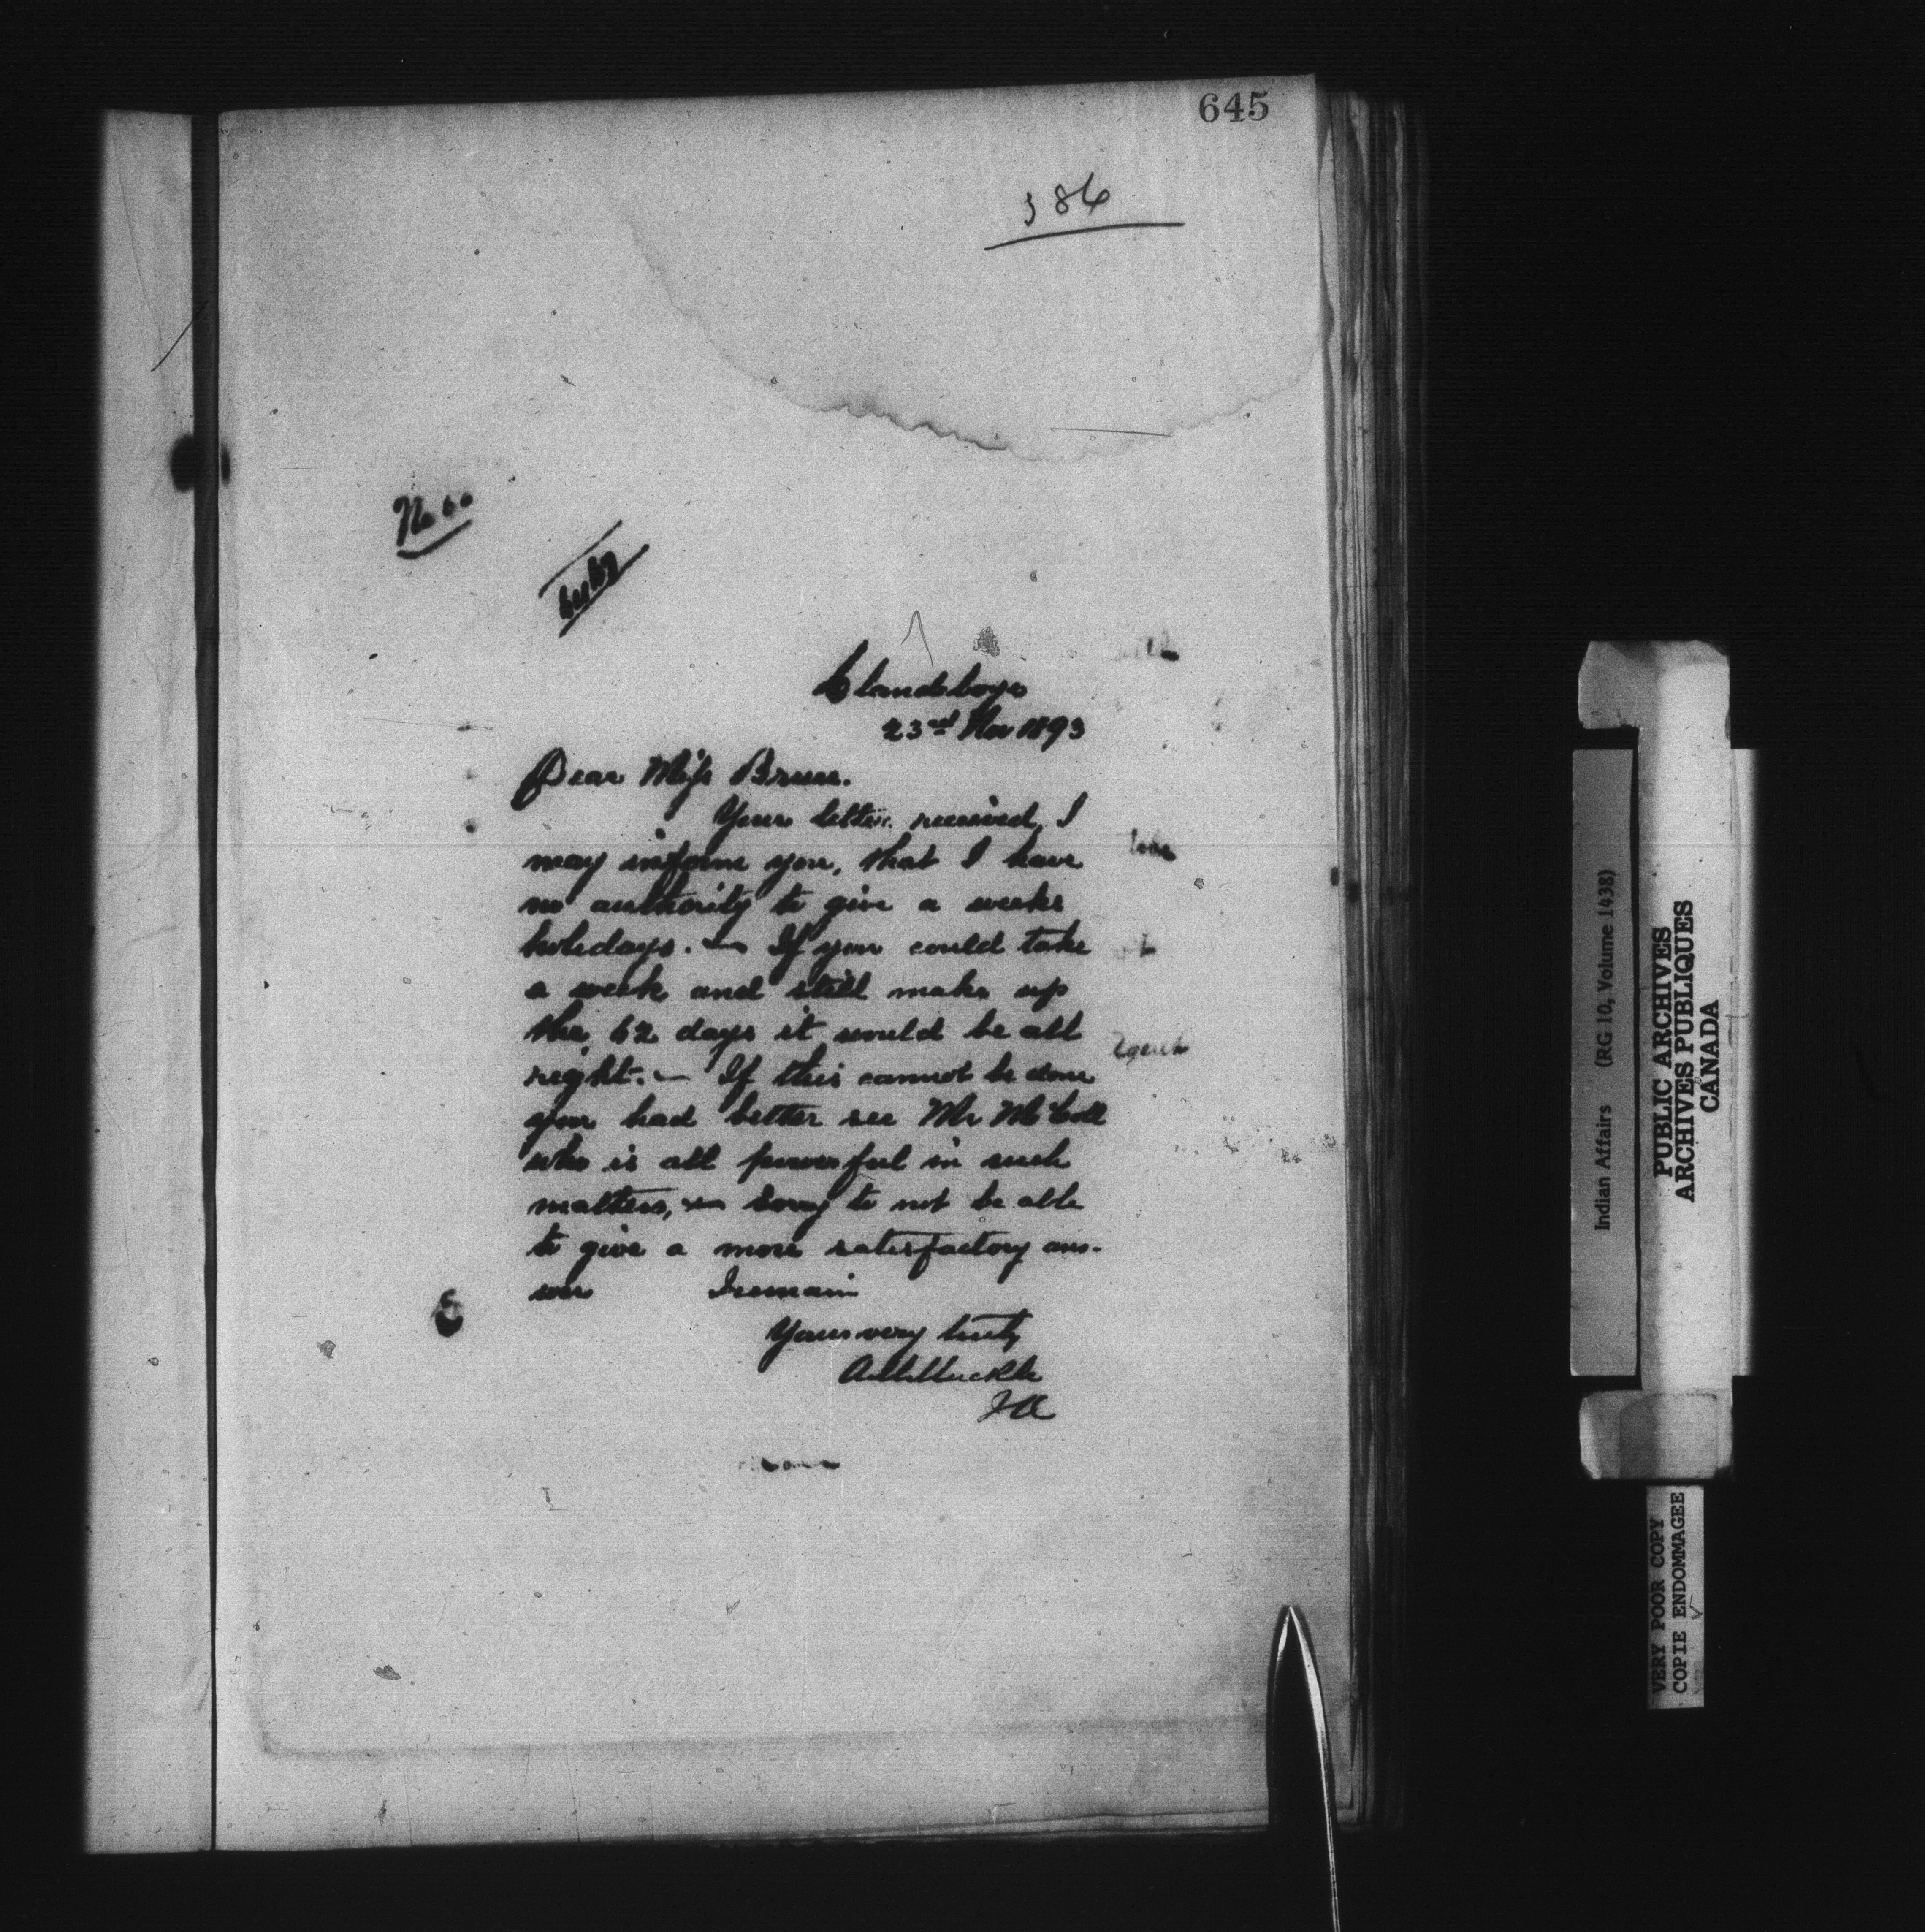 645
386
No 60
Clandeboye
23rd Nov 1893
Dear Miss Bruce.
Your letter received, I
may inform you, that I have
no authority to give a weeks
holidays. — If you could take
a week and still make up
the 62 days it would be all
right. — If this cannot be done
you had better see Mr McColl
who is all powerful in such
matters, — Sorry to not be able
to give a more satisfactory ans-
wer I remain
Yours very truly
A M Muckle
IA
Agent
Indian Affairs (RG 10, Volume 1438)
PUBLIC ARCHIVES
ARCHIVES PUBLIQUES
CANADA
VERY POOR COPY
COPIE ENDOMMAGEE